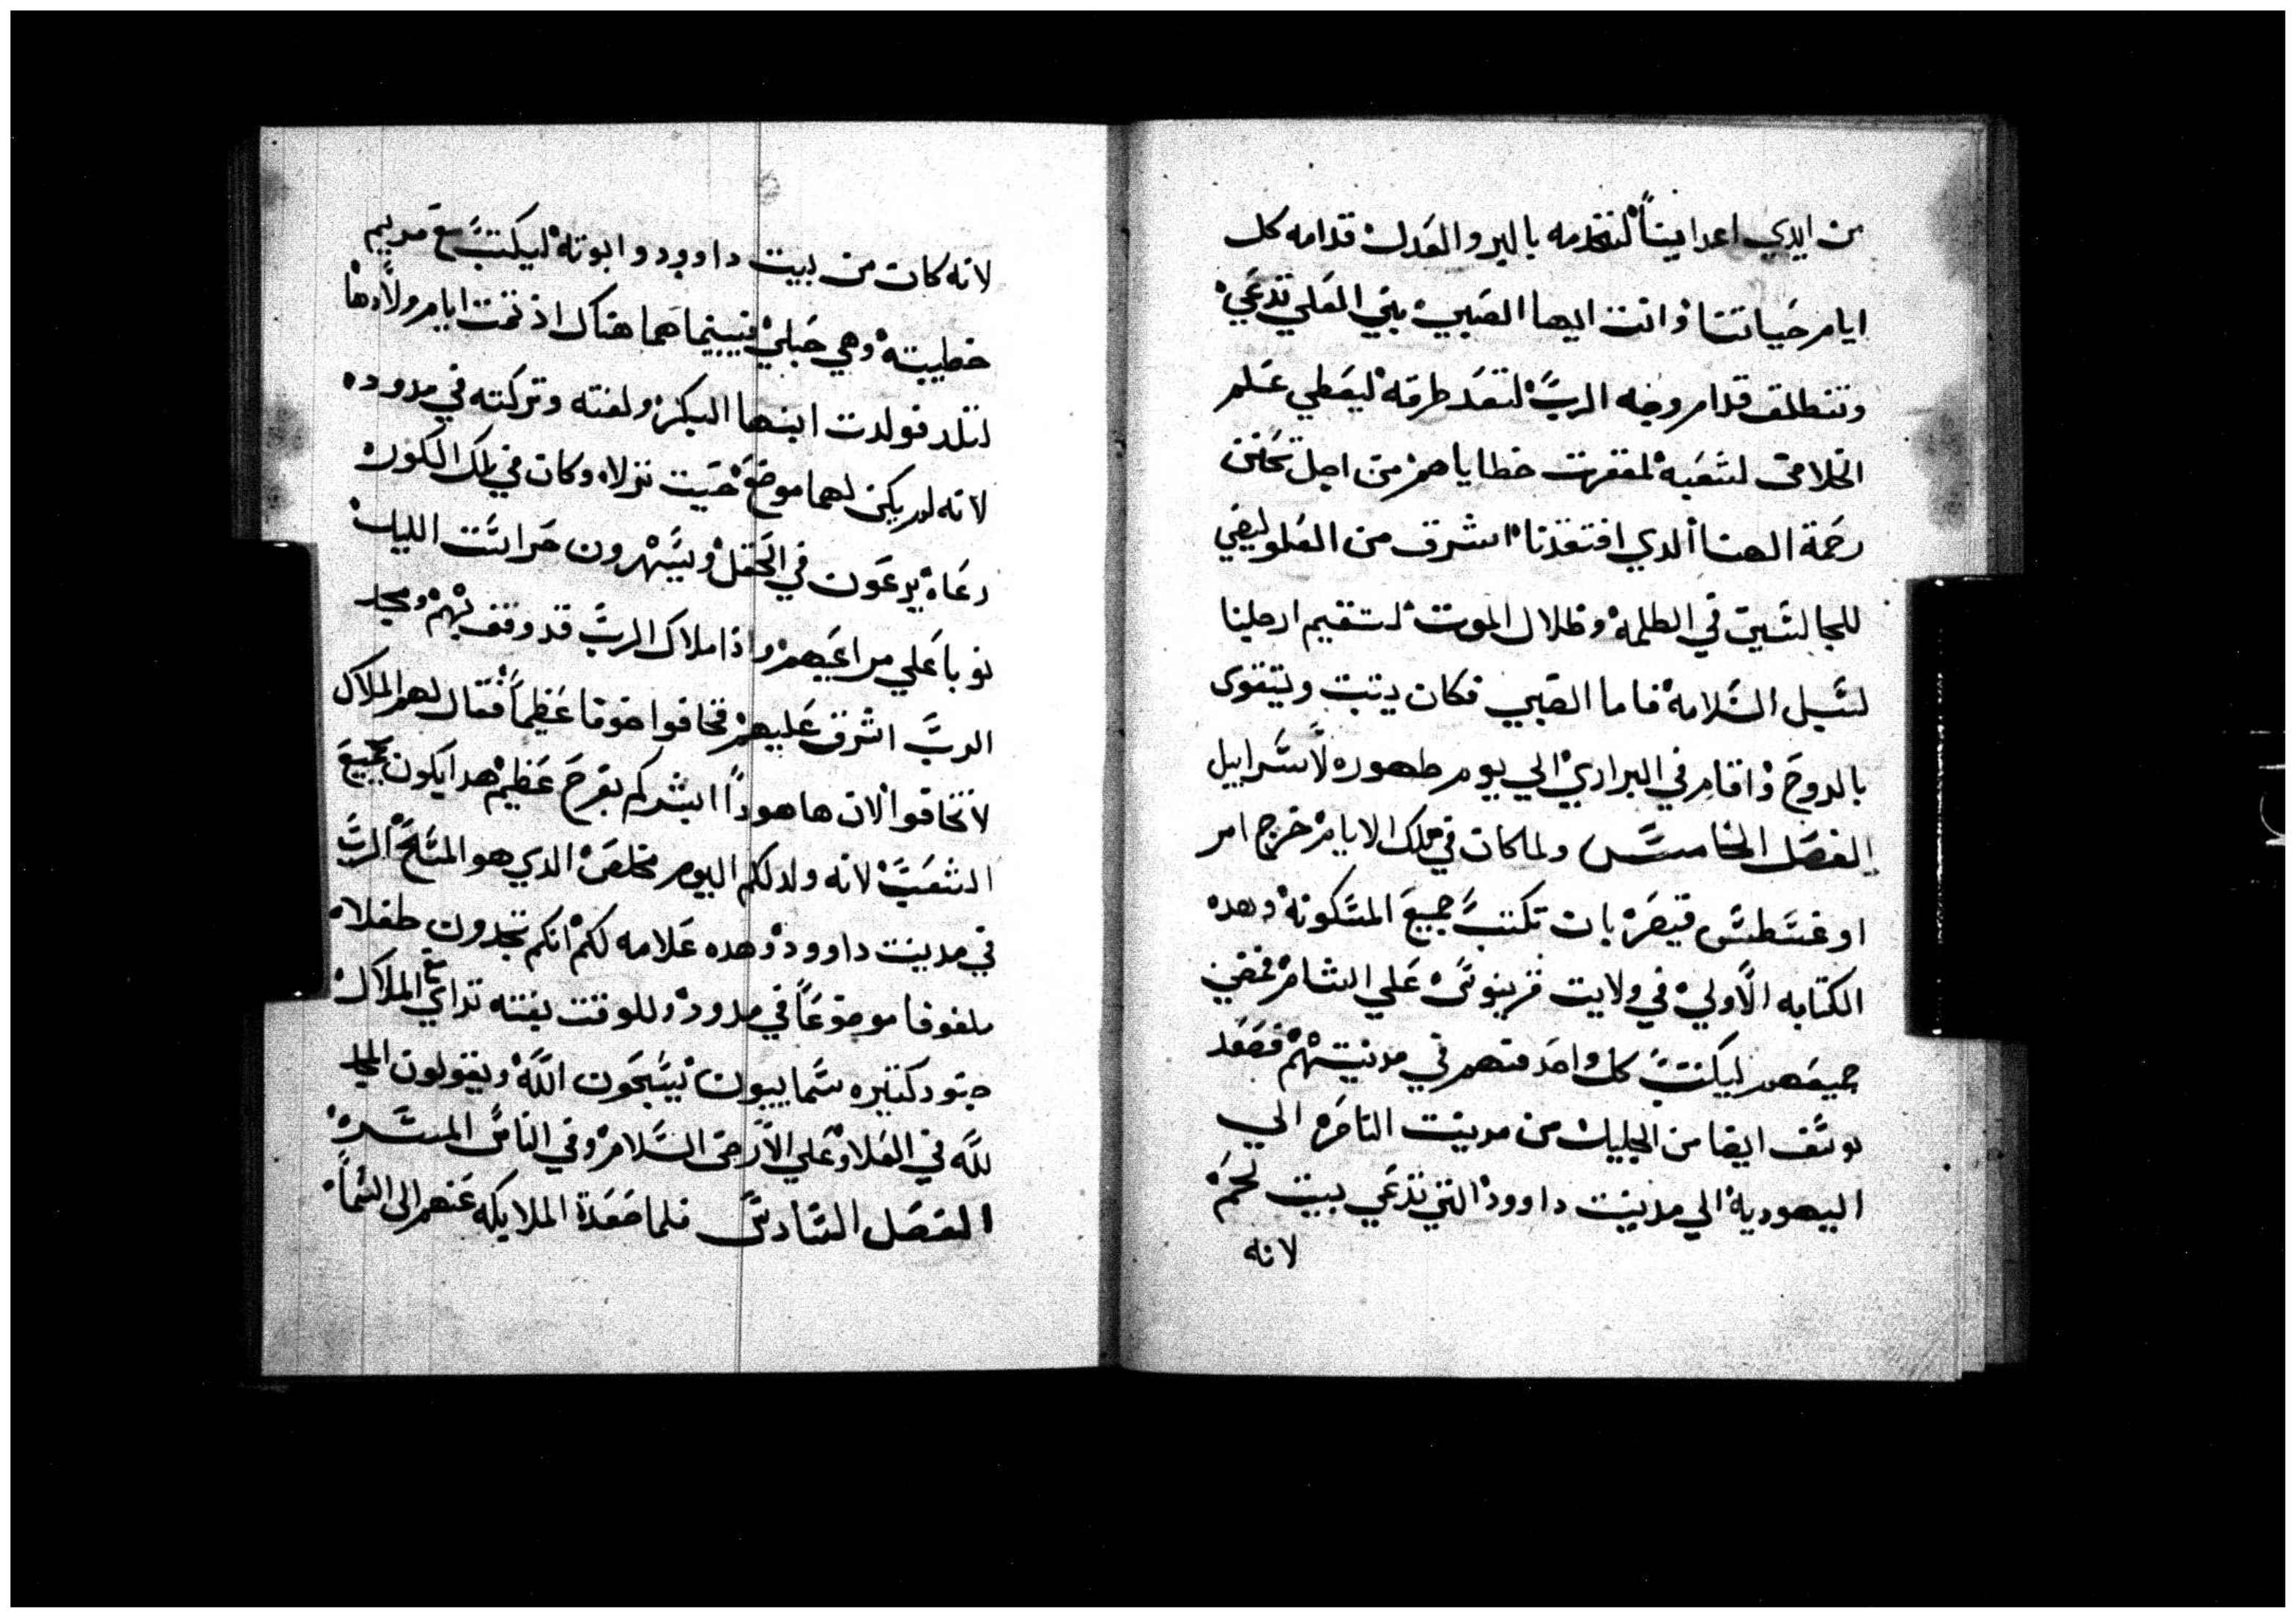 من ايدي اعداينا لنخدمه بالبر والعدل قدامه كل
ايام حياتنا وانت ايها الصبي نبي العلي تدعي
وتنطلق قدام وجه الرب لتعد طرقه ليعطي علم
الخلاص لشعبه لمغفرت خطاياهم من اجل تحنن
رحمة الهنا الدي افتقدنا اشرق من العلو ليضي
للجالسين في الظلمة وظلال الموت لتقيم ارجلنا
لسبل السلامة فاما الصبي فكان ينبت ويتقوي
بالروح واقام في البراري الي يوم ظهوره لاسراييل
الفصل الخامس ولما كان في تلك الايام خرج امر
اوغسطس قيصر بان تكتب جميع المسكونة وهده
الكتابه الاولي في ولايت قرينوس علي الشام فمضي
جميعهم ليكتب كل واحد منهم في مدينتهم فصعد
يوسف ايضا من الجليل من مدينت الناصره الي
اليهودية الي مدينت داوود التي تدعي بيت لحم
لانه
لانه كان من بيت داوود وابوته ليكتب مع مريم
خطيبته وهي حبلي فبينما هما هناك اذ تمت ايام ولادها
لتلد فولدت ابنها البكر ولفته وتركته في مدوده
لانه لم يكن لهما موضع حيت نزلا وكان في تلك الكورة
رعاه يرعون في الحقل ويسهرون حراست الليل
نوبا علي مراعيهم واذا ملاك الرب قد وقف بهم ومجد
الرب اشرق عليهم فخافوا خوفا عظيما فقال لهم الملاك
لا تخافوا الان هاهودا ابشركم بفرح عظيم هدا يكون لجميع
الشعب لانه ولد لكم اليوم مخلص الدي هو المسيح الرب
في مدينت داوود وهده علامه لكم انكم تجدون طفلا
ملفوفا موضوعا في مدود وللوقت بغته تراي مع الملاك
جنود كتيره سماييون يسبحون الله ويقولون المجد
لله في العلا وعلي الارض السلام وفي الناس المسره
الفصل السادس فلما صعدة الملايكه عنهم الى السما